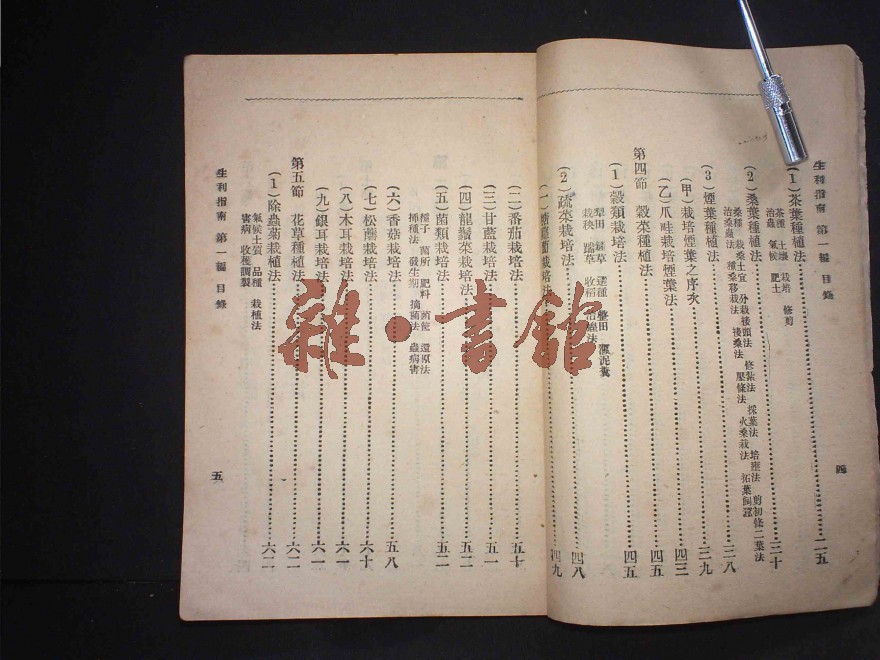 生利指南 第一編 目錄
四
(1)茶葉種植法……二五
茶種 土壤 栽培 修剪
治蟲 氣候 肥土
(2)桑葉種植法……三十
桑種 栽桑土宜 分栽接頭法 修紮法 採葉法 培壅法 剪初條二葉法
治桑蟲法 種桑移栽法 接桑法 壓條法 火桑栽法 拓葉飼蠶……三八
(3)煙葉種植法……三九
(甲)栽培煙葉之序次……四三
(乙)爪哇栽培煙葉法……四五
第四節 穀菜種植法
(1)穀類栽培法……四五
犂田 鏟草 選種 整田
栽秧 蹹草 收稻 治蟲法……四八
(2)蔬菜栽培法……四九
(二)番茄栽培法……五十
(三)甘藍栽培法……五一
(四)龍鬚菜栽培法……五二
(五)菌類栽培法……五二
種子 菌所 肥料 菌篦 還原法
播種法 發生期 摘菌法 蟲病害
(六)香菇栽培法……五八
(七)松蕈栽培法……六十
(八)木耳栽培法……六一
(九)銀耳栽培法……六一
第五節 花草種植法……六二
(1)除蟲菊栽植法……六二
氣候土質 品種 栽植法
害病 收穫調製
生利指南 第一編 目錄
五
雜·書館